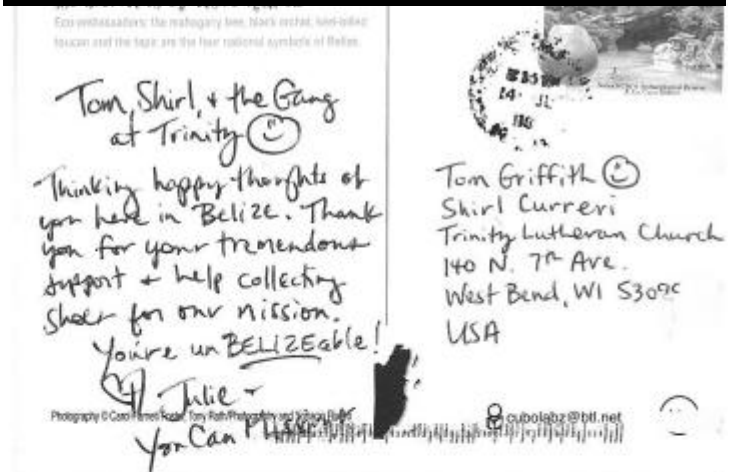 Eco-ambassadors: the mahogany tree, black orchid, keel-billed
toucan and the tapir are the four national symbols of Belize.
Tom, Shirl, + the Gang
at Trinity
Thinking happy thoughts of
you here in Belize. Thank
you for your tremendous
support + help collecting
shoes for our mission.
You're unBELIZEable!
Julie +
You Can
Photography © Tony Rath Photography and
Tom Griffith
Shirl Curreri
Trinity Lutheran Church
140 N. 7th Ave.
West Bend, WI
USA
cubolabz@btl.net